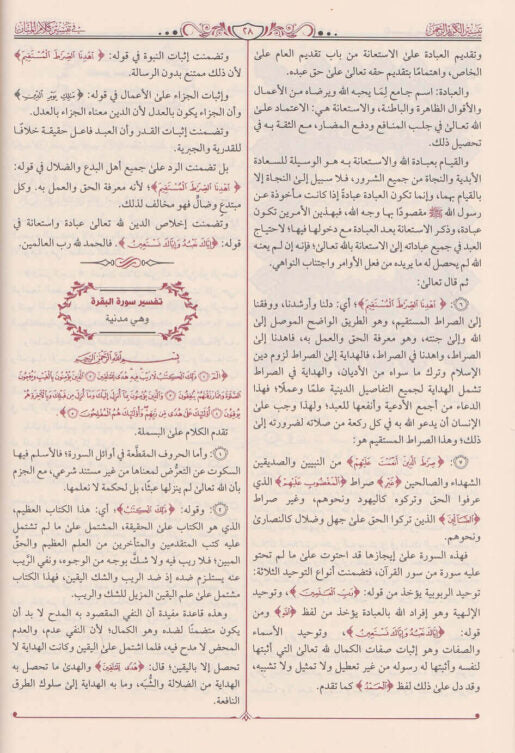 تيسير الكريم الرحمن
٢٨
في تفسير كلام المنان
وتقديم العبادة على الاستعانة من باب تقديم العام على
الخاص، واهتمامًا بتقديم حقه تعالى على حق عبده.
والعبادة: اسم جامع لِمَا يحبه الله ويرضاه من الأعمال
والأقوال الظاهرة والباطنة، والاستعانة هي: الاعتماد على
الله تعالى في جلب المنافع ودفع المضار، مع الثقة به في
تحصيل ذلك.
والقيام بعبادة الله والاستعانة به هو الوسيلة للسعادة
الأبدية والنجاة من جميع الشرور، فلا سبيل إلى النجاة إلا
بالقيام بهما، وإنما تكون العبادة عبادةً إذا كانت مأخوذة عن
رسول الله ﷺ مقصودًا بها وجه الله، فبهذين الأمرين تكون
عبادة، وذكر الاستعانة بعد العبادة مع دخولها فيها؛ لاحتياج
العبد في جميع عباداته إلى الاستعانة بالله تعالى؛ فإنه إن لم يعنه
الله لم يحصل له ما يريده من فعل الأوامر واجتناب النواهي.
ثم قال تعالى:
﴿٦﴾ ﴿اهْدِنَا الصِّرَاطَ الْمُسْتَقِيمَ﴾؛ أي: دلنا وأرشدنا، ووفقنا
إلى الصراط المستقيم، وهو الطريق الواضح الموصل إلى
الله وإلى جنته، وهو معرفة الحق والعمل به، فاهدنا إلى
الصراط، واهدنا في الصراط، فالهداية إلى الصراط لزوم دين
الإسلام وترك ما سواه من الأديان، والهداية في الصراط
تشمل الهداية لجميع التفاصيل الدينية علمًا وعملًا؛ فهذا
الدعاء من أجمع الأدعية وأنفعها للعبد؛ ولهذا وجب على
الإنسان أن يدعو الله به في كل ركعة من صلاته لضرورته إلى
ذلك؛ وهذا الصراط المستقيم هو:
﴿٧﴾ ﴿صِرَاطَ الَّذِينَ أَنْعَمْتَ عَلَيْهِمْ﴾ من النبيين والصديقين
الشهداء والصالحين ﴿غَيْرِ﴾ صراط ﴿الْمَغْضُوبِ عَلَيْهِمْ﴾ الذي
عرفوا الحق وتركوه كاليهود ونحوهم، وغير صراط
﴿الضَّالِّينَ﴾ الذين تركوا الحق على جهل وضلال كالنصارى
ونحوهم.
فهذه السورة على إيجازها قد احتوت على ما لم تحتو
عليه سورة من سور القرآن، فتضمنت أنواع التوحيد الثلاثة:
توحيد الربوبية يؤخذ من قوله: ﴿رَبِّ الْعَالَمِينَ﴾، وتوحيد
الإلهية وهو إفراد الله بالعبادة يؤخذ من لفظ ﴿اللَّهِ﴾ ومن
قوله: ﴿إِيَّاكَ نَعْبُدُ وَإِيَّاكَ نَسْتَعِينُ﴾، وتوحيد الأسماء
والصفات وهو إثبات صفات الكمال لله تعالى التي أثبتها
لنفسه وأثبتها له رسوله من غير تعطيل ولا تمثيل ولا تشبيه،
وقد دل على ذلك لفظ ﴿الْحَمْدُ﴾ كما تقدم.
وتضمنت إثبات النبوة في قوله: ﴿اهْدِنَا الصِّرَاطَ الْمُسْتَقِيمَ﴾
لأن ذلك ممتنع بدون الرسالة.
وإثبات الجزاء على الأعمال في قوله: ﴿مَالِكِ يَوْمِ الدِّينِ﴾
وأن الجزاء يكون بالعدل لأن الدين معناه الجزاء بالعدل.
وتضمنت إثبات القدر وأن العبد فاعل حقيقة خلافًا
للقدرية والجبرية.
بل تضمنت الرد على جميع أهل البدع والضلال في قوله:
﴿اهْدِنَا الصِّرَاطَ الْمُسْتَقِيمَ﴾؛ لأنه معرفة الحق والعمل به. وكل
مبتدع وضال فهو مخالف لذلك.
وتضمنت إخلاص الدين لله تعالى عبادة واستعانة في
قوله: ﴿إِيَّاكَ نَعْبُدُ وَإِيَّاكَ نَسْتَعِينُ﴾. فالحمد لله رب العالمين.
تفسير سورة البقرة
وهي مدنية
بِسْمِ اللَّهِ الرَّحْمَٰنِ الرَّحِيمِ
﴿الم ١ ذَٰلِكَ الْكِتَابُ لَا رَيْبَ فِيهِ هُدًى لِّلْمُتَّقِينَ ٢ الَّذِينَ يُؤْمِنُونَ بِالْغَيْبِ وَيُقِيمُونَ
الصَّلَاةَ وَمِمَّا رَزَقْنَاهُمْ يُنفِقُونَ ٣ وَالَّذِينَ يُؤْمِنُونَ بِمَا أُنزِلَ إِلَيْكَ وَمَا أُنزِلَ مِن قَبْلِكَ وَبِالْآخِرَةِ هُمْ
يُوقِنُونَ ٤ أُولَٰئِكَ عَلَىٰ هُدًى مِّن رَّبِّهِمْ وَأُولَٰئِكَ هُمُ الْمُفْلِحُونَ ٥﴾
تقدم الكلام على البسملة.
﴿١﴾: وأما الحروف المقطَّعة في أوائل السورة؛ فالأسلم فيها
السكوت عن التعرُّض لمعناها من غير مستند شرعي، مع الجزم
بأن الله تعالى لم ينزلها عبثًا، بل لحكمة لا نعلمها.
﴿٢﴾ وقوله: ﴿ذَٰلِكَ الْكِتَابُ﴾؛ أي: هذا الكتاب العظيم،
الذي هو الكتاب على الحقيقة، المشتمل على ما لم تشتمل
عليه كتب المتقدمين والمتأخرين من العلم العظيم والحقِّ
المبين؛ فلا ريب فيه ولا شكَّ بوجه من الوجوه، ونفي الرَّيب
عنه يستلزم ضده إذ ضد الريب والشك اليقين، فهذا الكتاب
مشتمل على علم اليقين المزيل للشك والريب.
وهذه قاعدة مفيدة أن النفي المقصود به المدح لا بد أن
يكون متضمنًا لضده وهو الكمال؛ لأن النفي عدم، والعدم
المحض لا مدح فيه، فلما اشتمل على اليقين وكانت الهداية لا
تحصل إلا باليقين؛ قال: ﴿هُدًى لِّلْمُتَّقِينَ﴾ والهدى ما تحصل به
الهداية من الضلالة والشُّبَه، وما به الهداية إلى سلوك الطرق
النافعة.